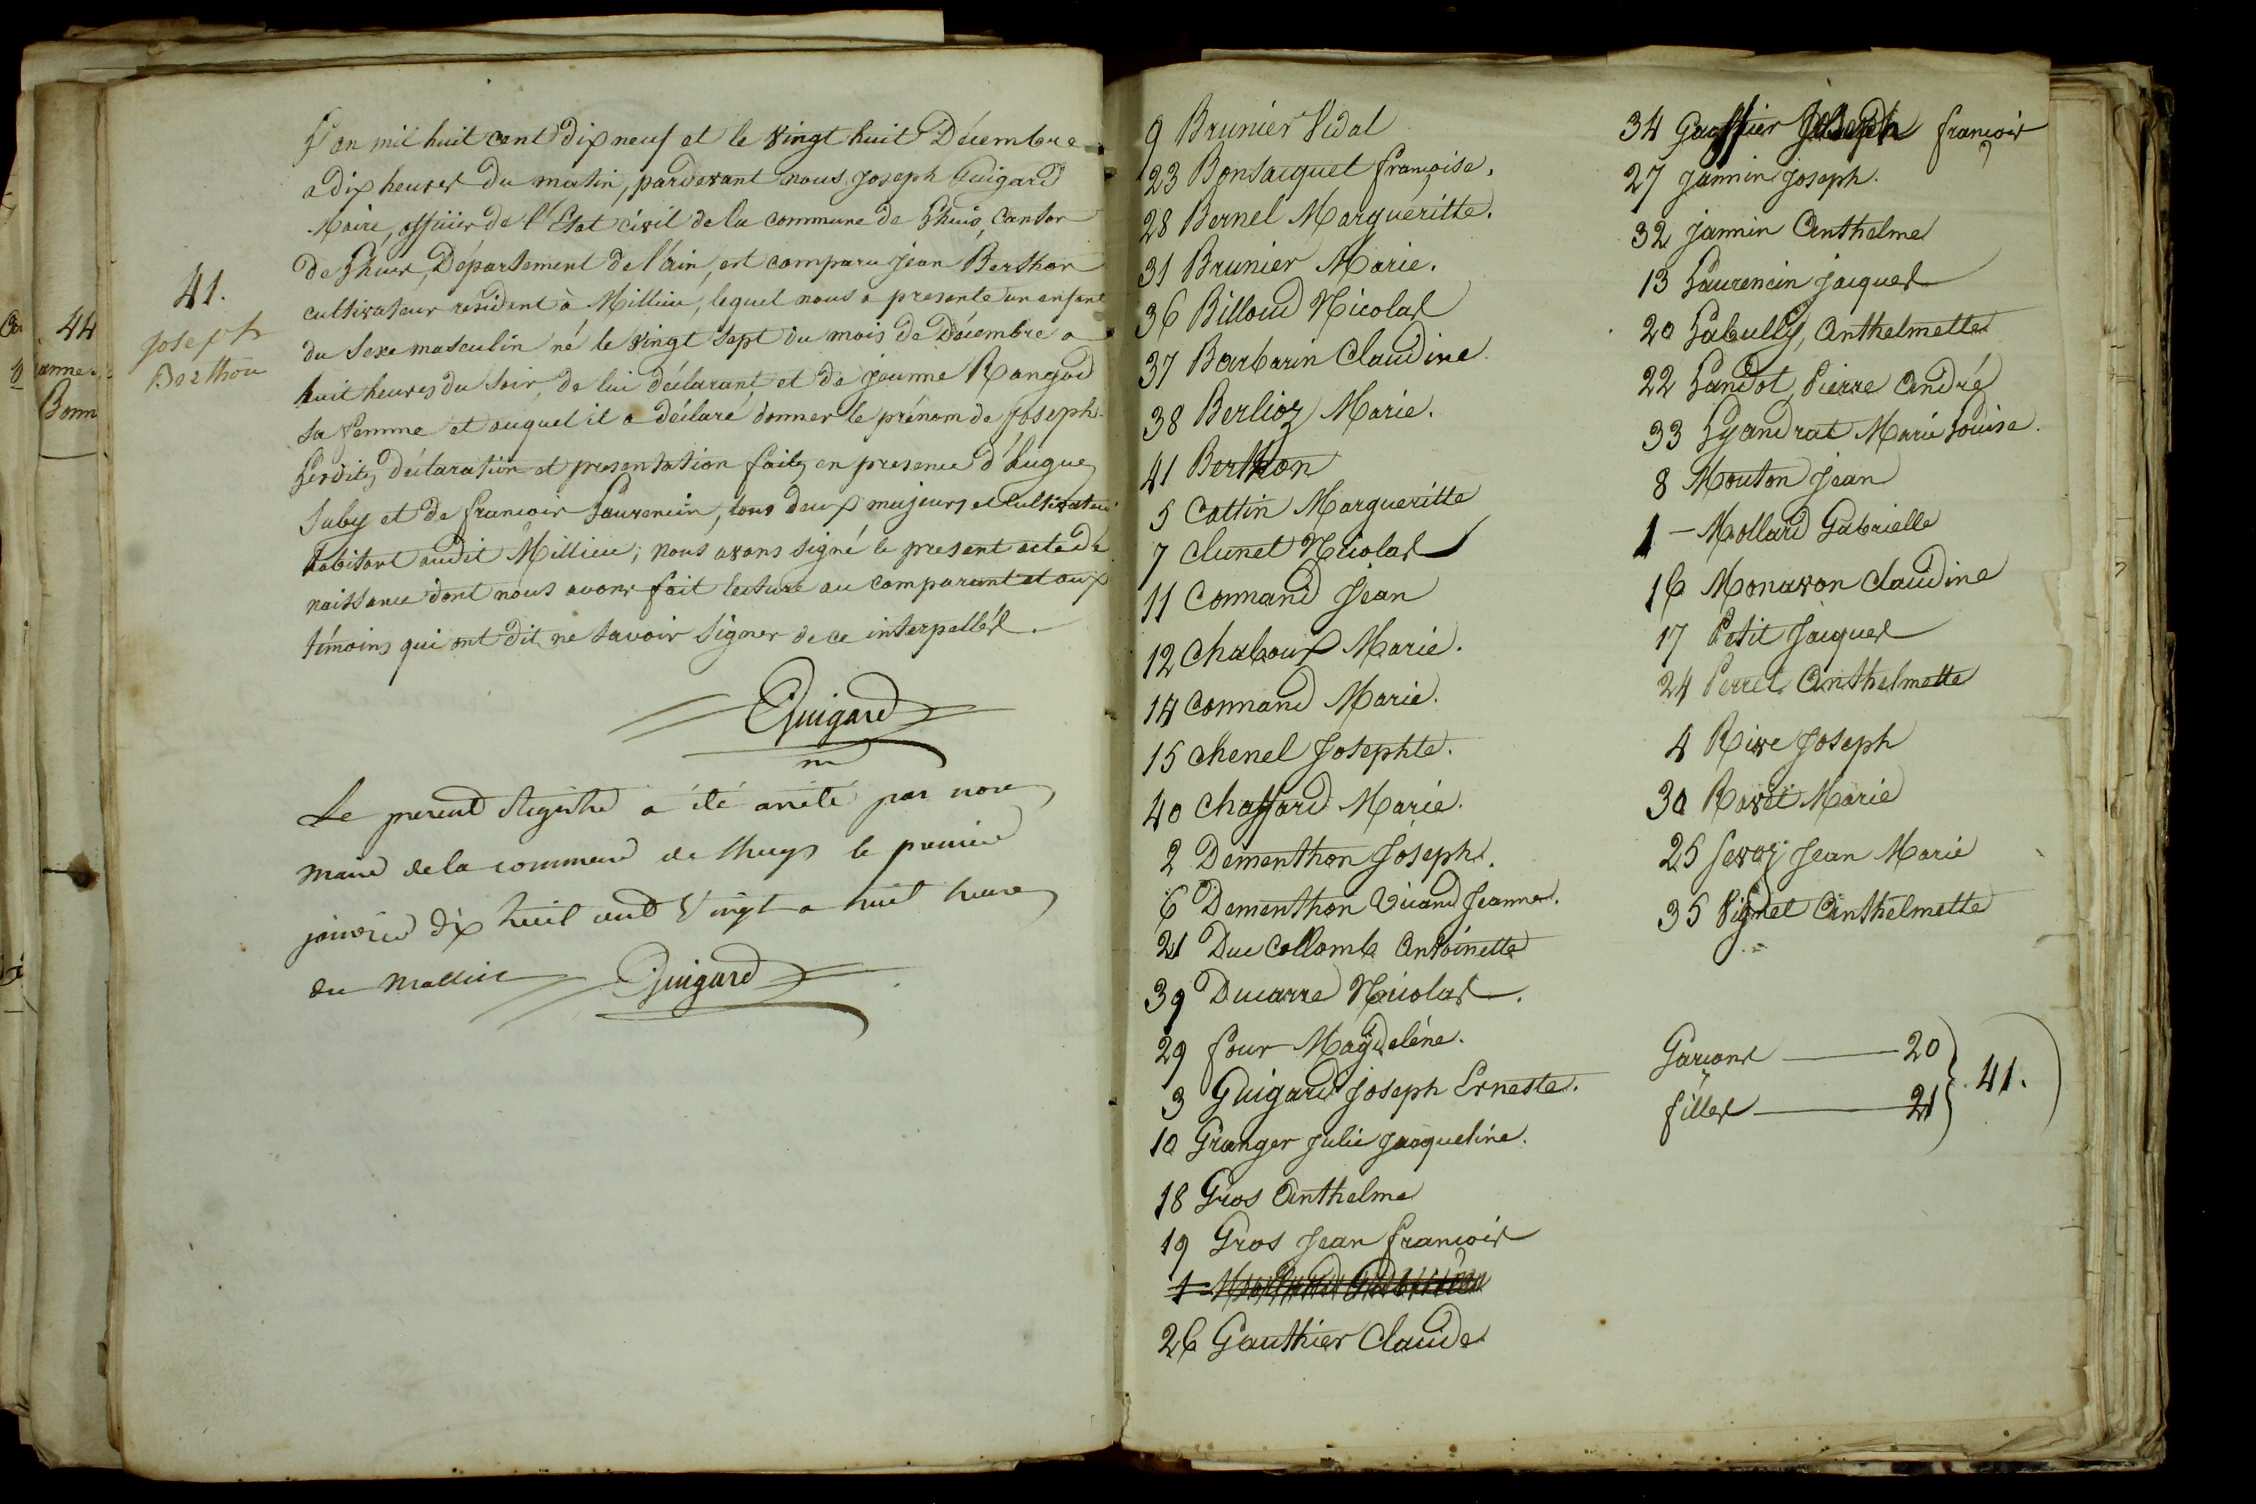 41.
joseph
Berthon
44
anne
Bonn
L'an mil huit cent dix neuf et le vingt huit Décembre
a dix heures du matin, pardevant nous joseph Guigard
Maire, officier de l'Etat civil de la commune de Lhuis, Canton
de Lhuis, Département de l'ain, est comparu jean Berthon
cultivateur résident à Millieu, lequel nous a presenté un enfant
du sexe masculin né le vingt sept du mois de Décembre a
huit heures du soir, de lui déclarant et de jeanne
sa femme et auquel il a déclaré donner le prénom de joseph
Lesdites déclaration et presentation faites en presence d'hugue
Juby et de francois Laurencin, tous deux majeurs et cultivateurs
habitant audit Millieu; nous avons signé le present acte de
naissance dont nous avons fait lecture au comparant et aux
témoins qui ont dit ne savoir signer de ce interpellés.
Guigard
m
Le present Registre a été arrêté par nous
maire de la commune de lhuys le premier
janvier dix huit cent vingt a huit heures
du matin Guigard
9 Brunier Vidal
23 Bonsacquet françoise.
28 Bernel Marguéritte.
31 Brunier Marie.
36 Billoud Nicolas
37 Barbarin Claudine
38 Berlioz Marie.
41 Berthon
5 Cottin Margueritte
7 Clunet Nicolas
11 Connand Jean
12 Chaboux Marie.
14 Connand Marie.
15 Chenel Josephte.
40 Chaffard Marie.
2 Dementhon Joseph.
6 Dementhon Vicand Jeanne.
21 Duc Collomb Antoinette
39 Ducarre Nicolas.
29 four Magdeléne.
3 Guigard Joseph Erneste.
10 Granger Julie Jacqueline.
18 Gros Anthelme
19 Gros Jean francois
1 Mollard Gabrielle
26 Gauthier Claude
34 Gauthier Joseph françois
27 Jannin Joseph.
32 Jannin Anthelme
13 Laurencin Jacques
20 Labully, Anthelmette
22 Landot, Pierre André
33 Lyandrat Marie Louise.
8 Mouton Jean
1 - Mollard Gabrielle
16 Monavon Claudine
17 Petit Jacques
24 Perret Anthelmette
4 Rive Joseph
30 Ravet Marie
25 Sevoz Jean Marie
35 Vignet Anthelmette
Garçons 20
filles 21
41.